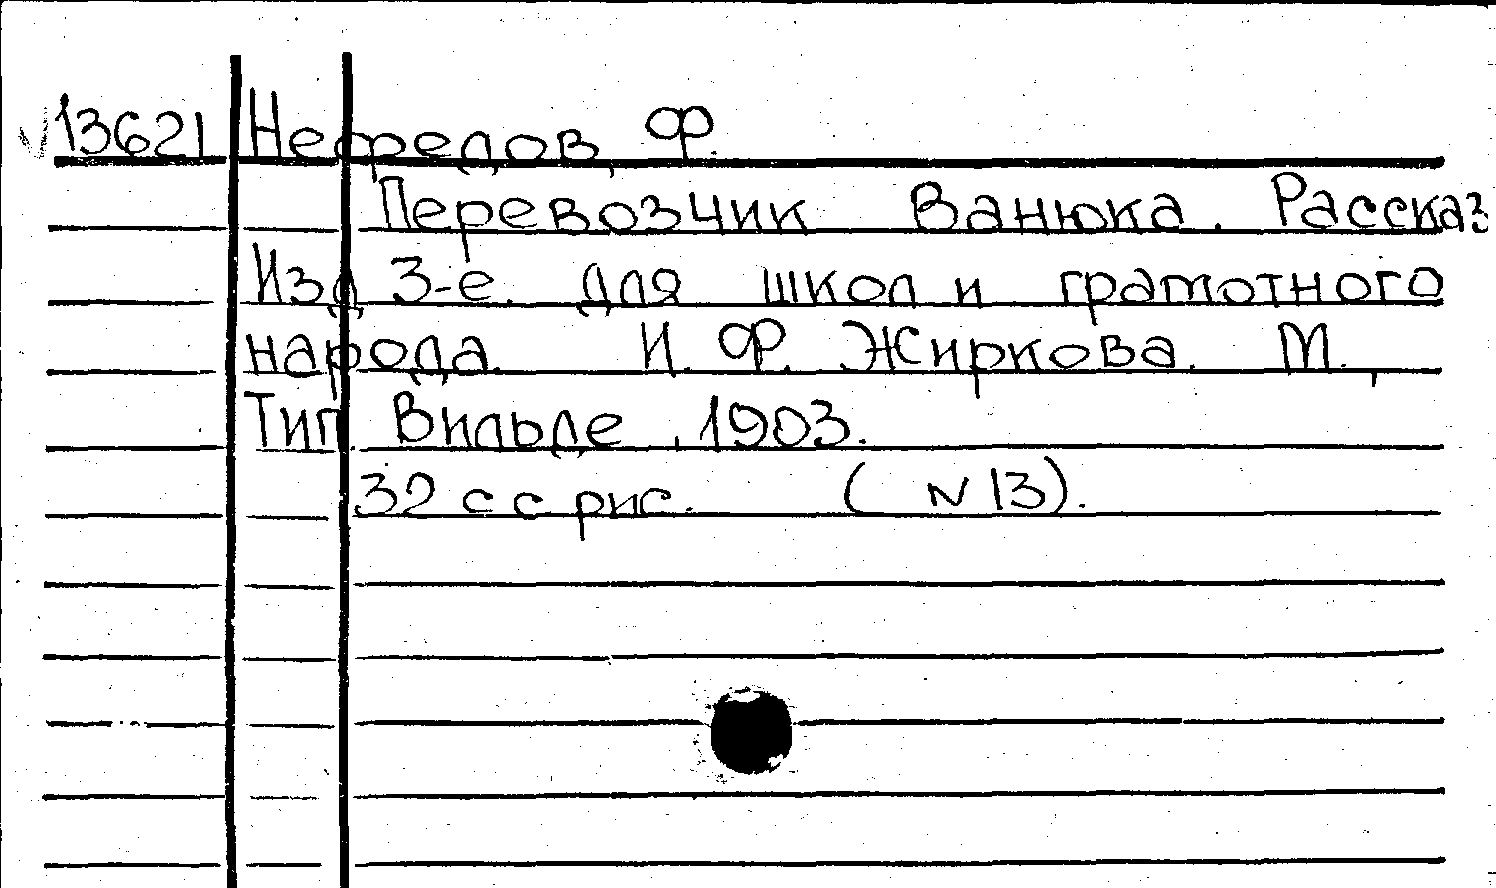 13621 Нефедов, Ф.
Перевозчик Ванюка. Рассказ
Изд 3-е. для школ и грамотного
народа. И. Ф. Жиркова. М.,
Тип. Вильде, 1903.
32 с с рис. (N 13).